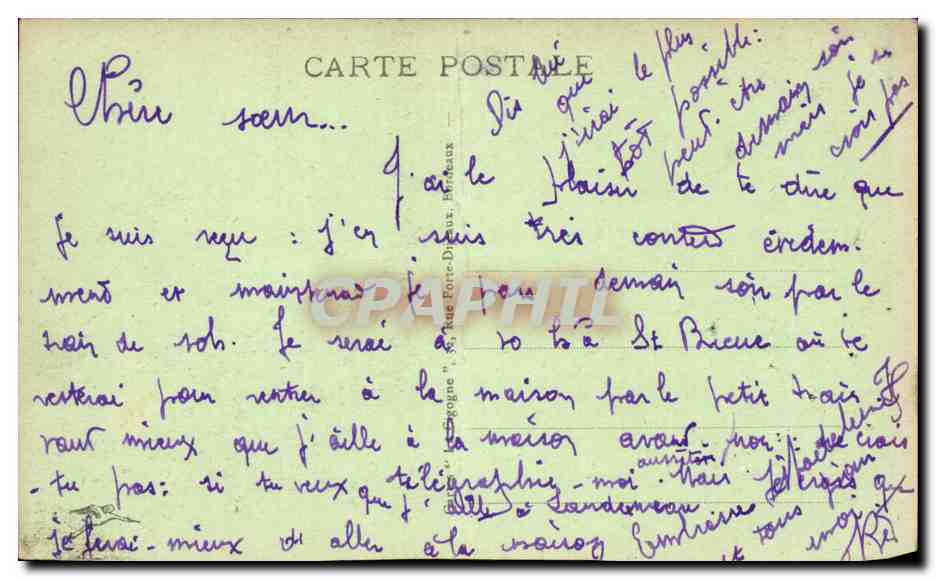 CARTE POSTALE
Chère sœur...
J'ai le plaisir de te dire que
je suis reçu : j'en suis très content évidem-
ment et maintenant je pars demain soir par le
train de 20h. Je serai à 10 h à St Brieuc où je
resterai pour rentrer à la maison par le petit train. Il
vaut mieux que j'aille à la maison avant, ne crois
-tu pas : si tu veux télégraphie-moi aussitôt. Mais je crois que
que j'aille à Landerneau
je ferai mieux d'aller à la maison
Embrasse
et tous
Dis lui
que le plus
j'irai possible :
tôt peut-être
demain soir
mais je ne
crois pas
"La Cigogne", 32, Rue Porte-Dijeaux, Bordeaux
CPAPHIL